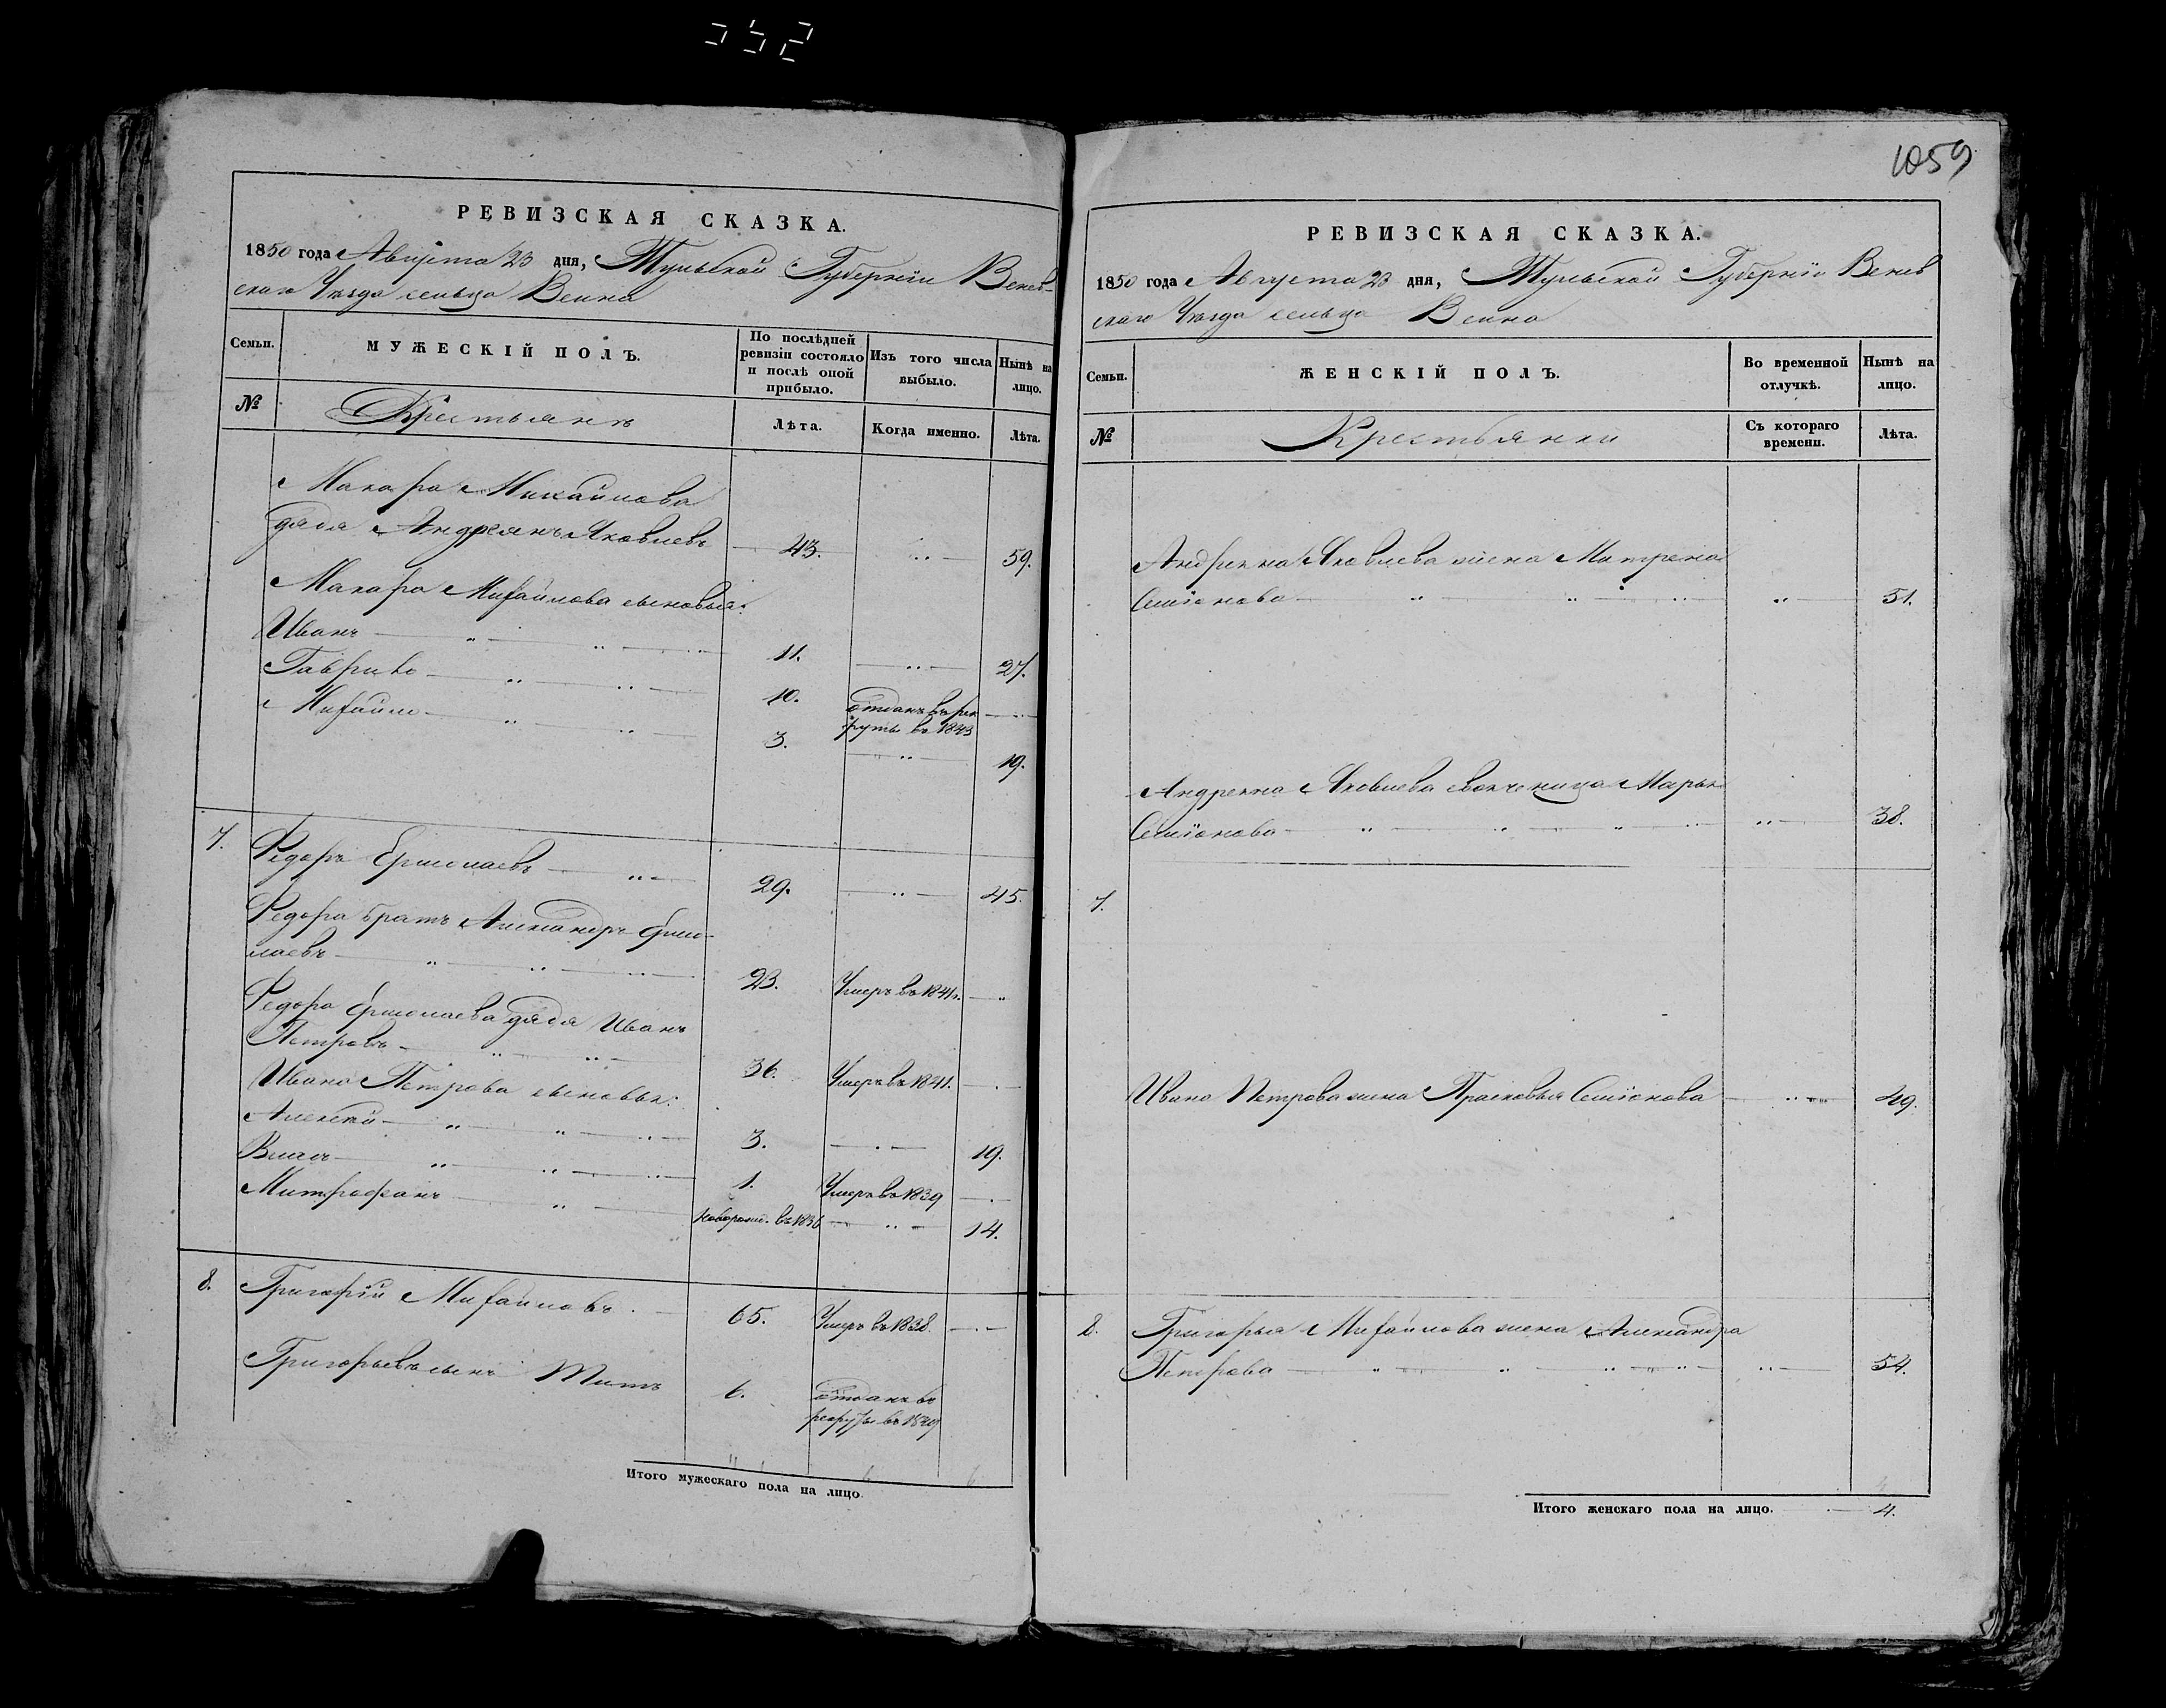 1059
РЕВИЗСКАЯ СКАЗКА.
1850 года Августа 23 дня, Тульской Губерніи Венев-
скаго Уѣзда сельца
Семьи.
МУЖЕСКІЙ ПОЛЪ.
По послѣдней ревизіи состояло и послѣ оной прибыло.
Изъ того числа выбыло.
Нынѣ на лицо.
№
Крестьянъ
Лѣта.
Когда именно.
Лѣта.
Макара Михайлова
дядя Андреянъ Яковлевъ 43. 59.
Макара Михайлова сыновья:
Иванъ 11. 27.
Гаврило 10. отданъ въ рек
руты въ 1843
Михайло 3. 19.
7. Федоръ Ермолаевъ 29. 45.
Федора братъ Александръ Ермо-
лаевъ 23. Умеръ въ 1841г.
Федора Ермолаева дядя Иванъ
Петровъ 36. Умеръ въ 1841.
Ивана Петрова сыновья:
Алексѣй 3. 19.
Власъ 1. Умеръ въ 1839
Митрофанъ новорожд. въ 1836 14.
8. Григорій Михайловъ 65. Умеръ въ 1838.
Григорьевъ сынъ Титъ 6. отданъ въ
рекруты въ 1849
Итого мужескаго пола на лицо
РЕВИЗСКАЯ СКАЗКА.
1850 года Августа 23 дня, Тульской Губерніи Венев
скаго Уѣзда сельца
Семьи.
ЖЕНСКІЙ ПОЛЪ.
Во временной отлучкѣ.
Нынѣ на лицо.
№
Крестьянки
Съ котораго времени.
Лѣта.
Андреяна Яковлева жена Матрена
Семіонова 51.
Андреяна Яковлева Марья
Семіонова 38.
7.
Ивана Петрова жена Прасковья Семіонова 49.
8. Григорья Михайлова жена Александра
Петрова 54.
Итого женскаго пола на лицо. 4.